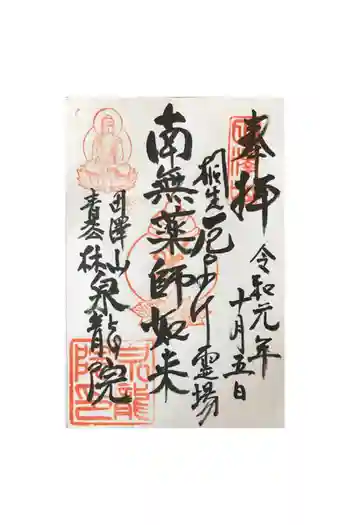 奉拝
令和元年
十月五日
桐生厄よけ霊場
南無薬師如来
田澤山
青蓮林
泉龍院
泉龍
院印